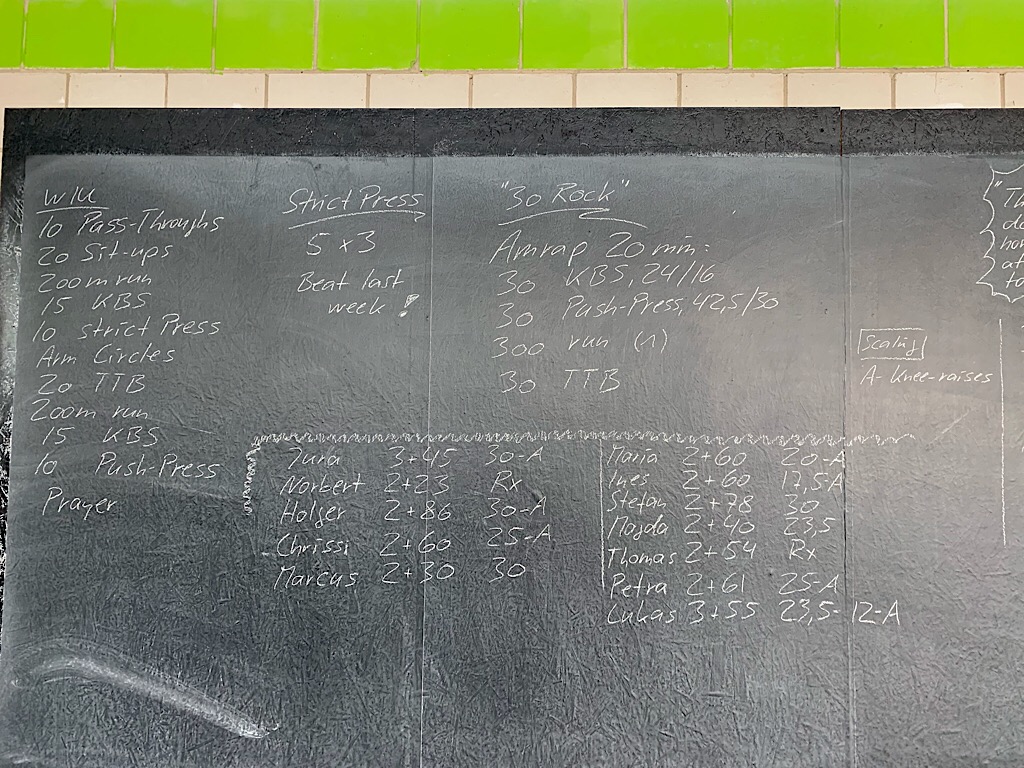 W/U
10 Pass-Throughs
20 Sit-ups
200m run
15 KBS
10 strict Press
Arm Circles
20 TTB
200m run
15 KBS
10 Push-Press
Prayer
Strict Press
5 x 3
Beat last
week!
"30 Rock"
Amrap 20 min:
30 KBS, 24/16
30 Push-Press, 42,5/30
300 run (1)
30 TTB
Scaling
A- Knee-raises
Jura 3+45 30-A
Norbert 2+23 Rx
Holger 2+86 30-A
Chrissi 2+60 25-A
Marcus 2+30 30
Maria 2+60 20-A
Ines 2+60 17,5-A
Stefan 2+78 30
Magda 2+40 23,5
Thomas 2+54 Rx
Petra 2+61 25-A
Lukas 3+55 23,5-12-A